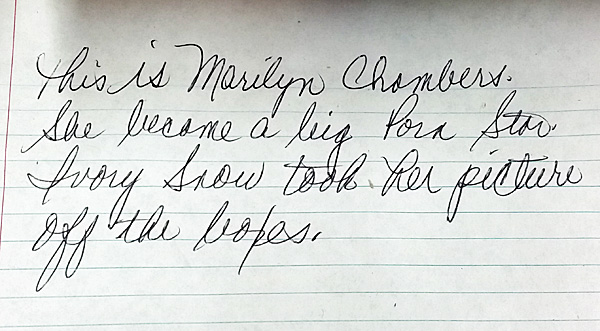 This is Marilyn Chambers.
She became a big Porn Star.
Ivory Snow took her picture
off the boxes.